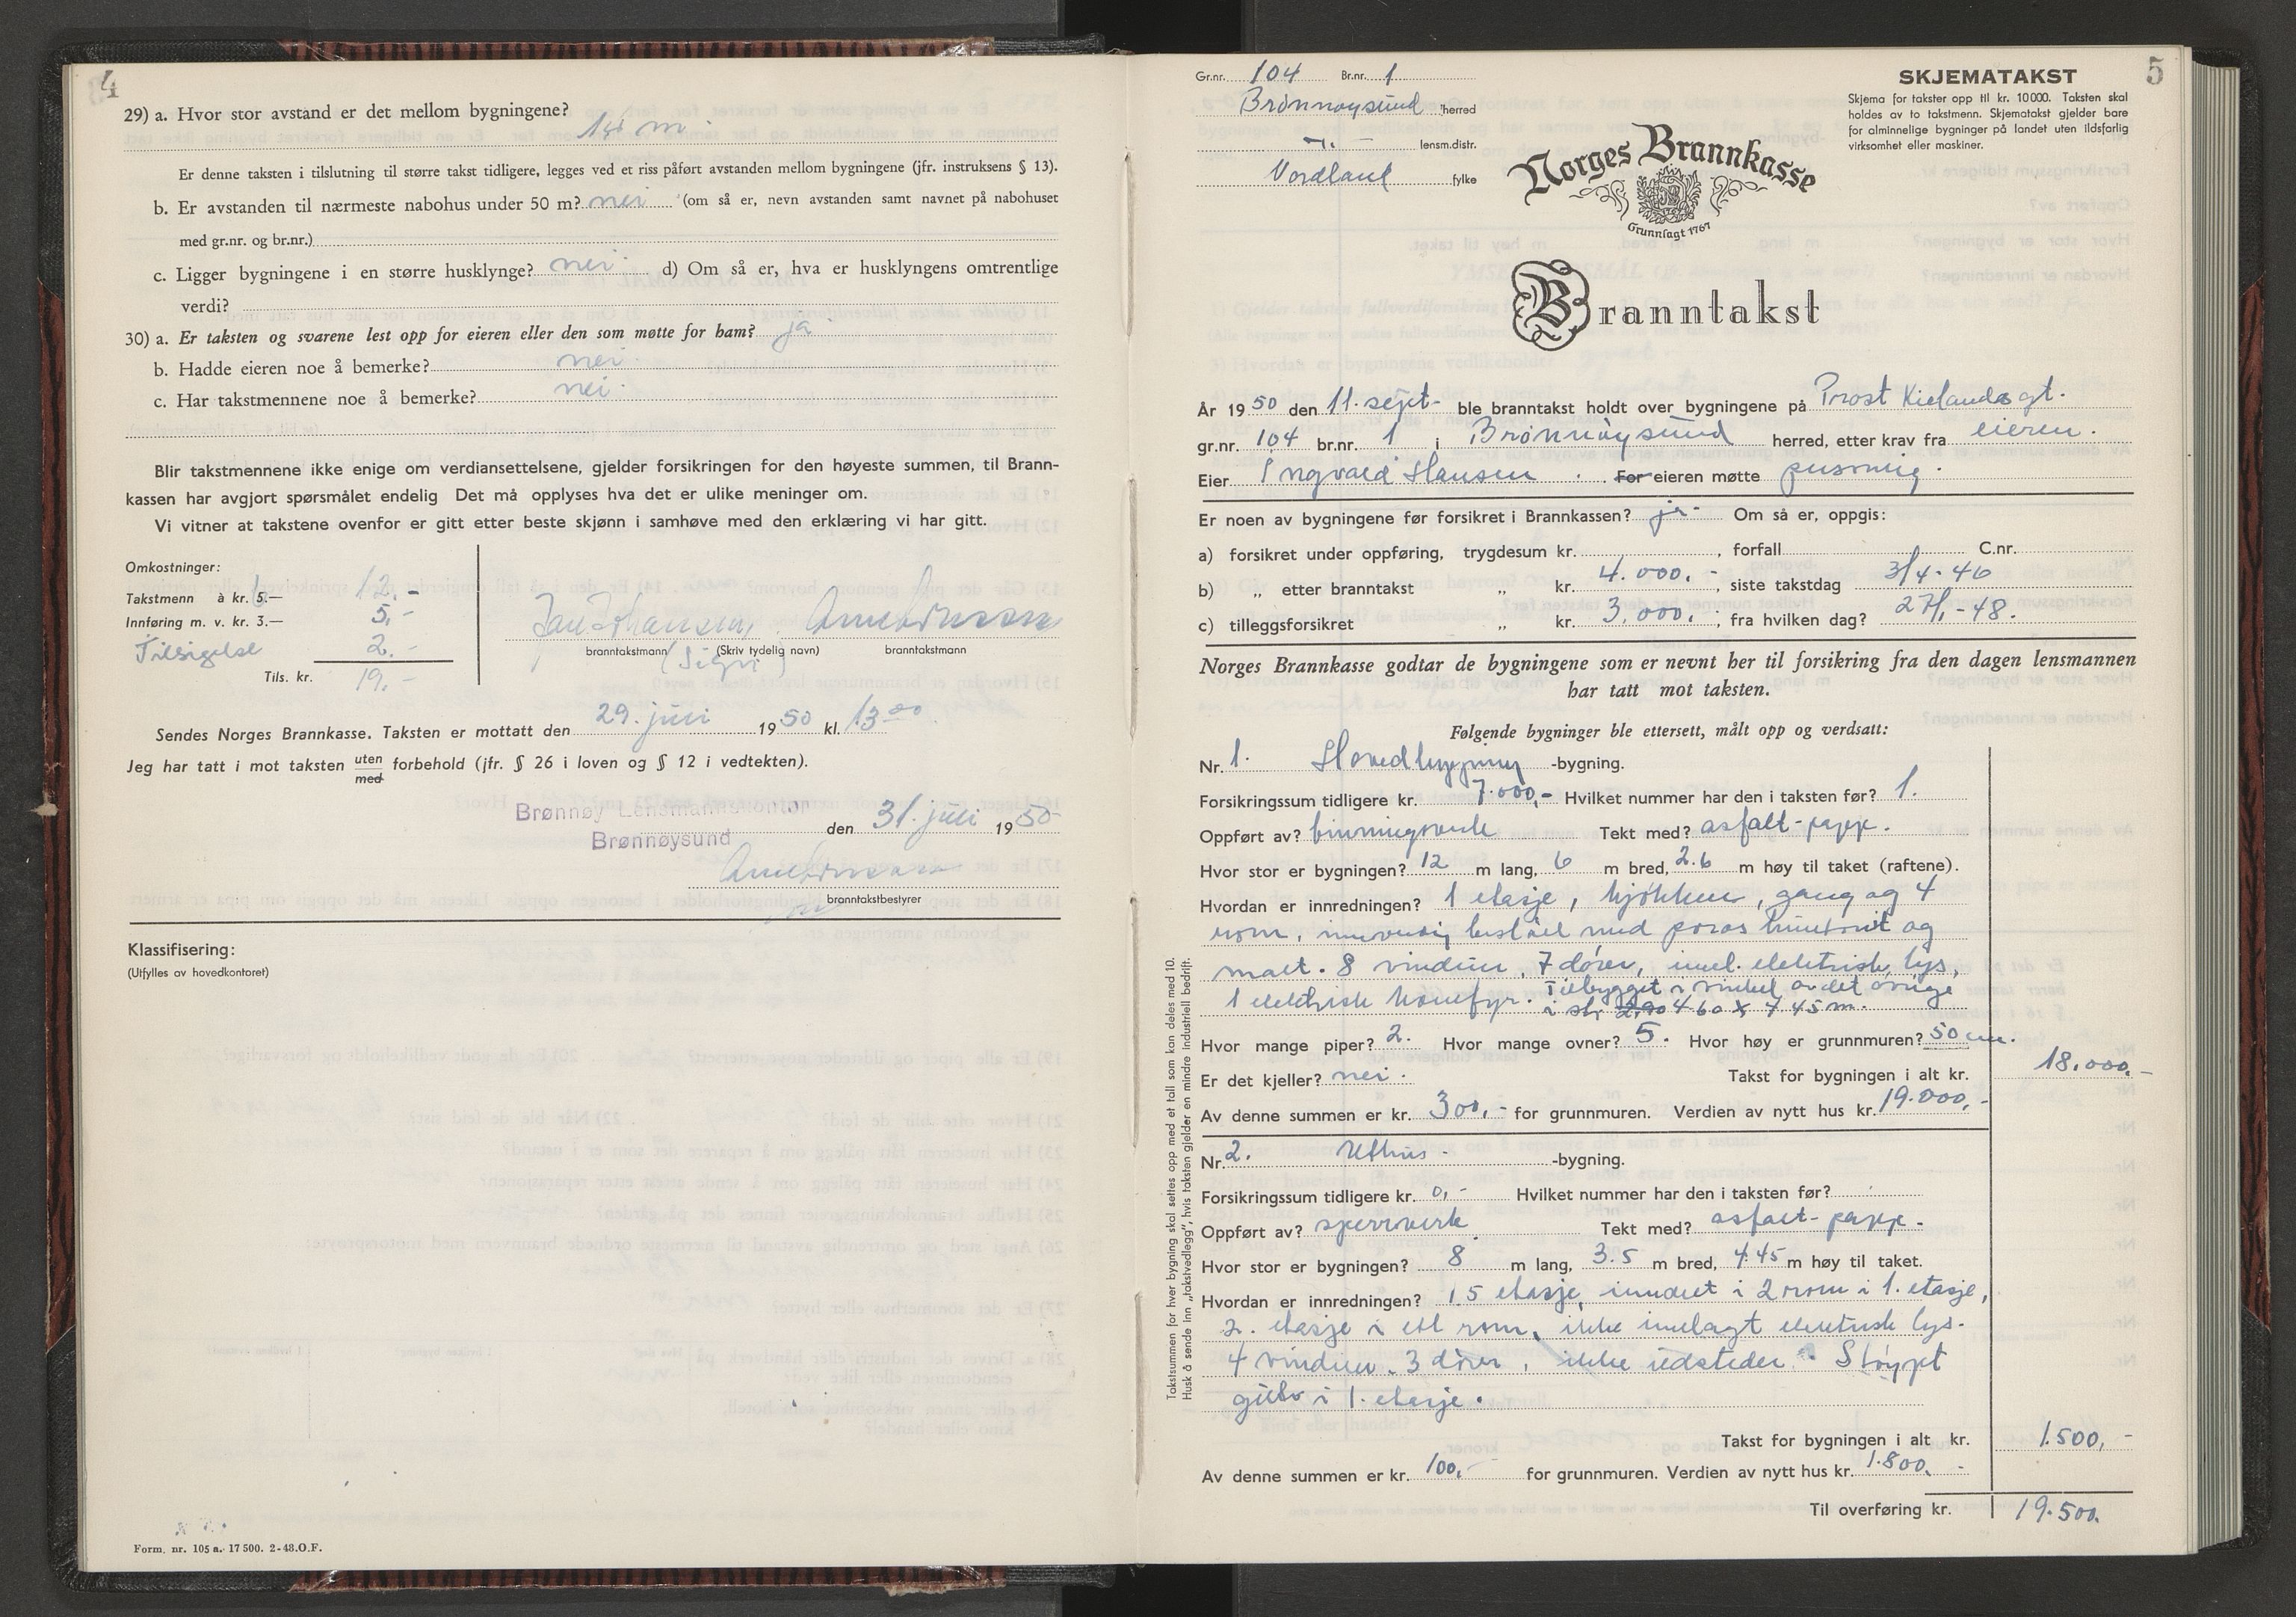 4
29) a. Hvor stor avstand er det mellom bygningene?
m.
Er denne taksten i tilslutning til større takst tidligere, legges ved et riss påført avstanden mellom bygningene (jfr. instruksens § 13).
b. Er avstanden til nærmeste nabohus under 50 m? nei (om så er, nevn avstanden samt navnet på nabohuset
med gr.nr. og br.nr.)
c. Ligger bygningene i en større husklynge? nei. d) Om så er, hva er husklyngens omtrentlige
verdi?
30) a. Er taksten og svarene lest opp for eieren eller den som møtte for ham? ja
b. Hadde eieren noe å bemerke? nei.
c. Har takstmennene noe å bemerke? nei.
Blir takstmennene ikke enige om verdiansettelsene, gjelder forsikringen for den høyeste summen, til Brann-
kassen har avgjort spørsmålet endelig Det må opplyses hva det er ulike meninger om.
Vi vitner at takstene ovenfor er gitt etter beste skjønn i samhøve med den erklæring vi har gitt.
Omkostninger:
Takstmenn à kr. 5.— 12.-
Innføring m. v. kr. 3.— 5,-
Tilsigelse 2.-
Tils. kr. 19.-
branntakstmann (Skriv tydelig navn) branntakstmann
Sendes Norges Brannkasse. Taksten er mottatt den 29. juli 1950 kl. 13 00
Jeg har tatt i mot taksten uten med forbehold (jfr. § 26 i loven og § 12 i vedtekten).
Brønnøy Lensmannskontor
Brønnøysund den 31. juli 1950
branntakstbestyrer
Klassifisering:
(Utfylles av hovedkontoret)
Form. nr. 105 a. 17 500. 2-48.O.F.
5
Gr.nr. 104 Br.nr. 1
Brønnøysund herred
lensm.distr.
Nordland fylke
SKJEMATAKST
Skjema for takster opp til kr. 10 000. Taksten skal
holdes av to takstmenn. Skjematakst gjelder bare
for alminnelige bygninger på landet uten ildsfarlig
virksomhet eller maskiner.
Norges Brannkasse
Grunnlagt 1767
Branntakst
År 1950 den 11. sept. ble branntakst holdt over bygningene på Prost Kielands gt.
gr.nr. 104 br.nr. 1 i Brønnøysund herred, etter krav fra eieren.
Eier Ingvald Hansen. For eieren møtte personlig.
Er noen av bygningene før forsikret i Brannkassen? ja- Om så er, oppgis:
a) forsikret under oppføring, trygdesum kr. , forfall C.nr.
b) „ etter branntakst „ kr. 4.000.- , siste takstdag 3/4-46
c) tilleggsforsikret „ kr. 3.000.- , fra hvilken dag? 27/1.-48.
Norges Brannkasse godtar de bygningene som er nevnt her til forsikring fra den dagen lensmannen
har tatt mot taksten.
Følgende bygninger ble ettersett, målt opp og verdsatt:
Nr. 1. Hovedbygning -bygning.
Forsikringssum tidligere kr. 7.000,- Hvilket nummer har den i taksten før? 1.
Oppført av? binningsverk Tekt med? asfalt-papp.
Hvor stor er bygningen? 12 m lang, 6 m bred, 2.6 m høy til taket (raftene).
Hvordan er innredningen? 1 etasje, kjøkken, gang og 4
rom, innvendig bestået med porøs huntonit og
malt. 8 vinduer, 7 dører, innl. elektrisk lys,
1 elektrisk komfyr. Tilbygget i vinkel av det øvrige
i str. 2,90 4.60 x 7.45 m.
Hvor mange piper? 2. Hvor mange ovner? 5. Hvor høy er grunnmuren? 50 cm.
Er det kjeller? nei. Takst for bygningen i alt kr. 18.000,-
Av denne summen er kr. 300,- for grunnmuren. Verdien av nytt hus kr. 19.000,-
Nr. 2. Uthus- -bygning.
Forsikringssum tidligere kr. 0,- Hvilket nummer har den i taksten før?
Oppført av? sperrverk Tekt med? asfalt-papp.
Hvor stor er bygningen? 8 m lang, 3.5 m bred, 4.45 m høy til taket.
Hvordan er innredningen? 1.5 etasje, innredet i 2 rom i 1. etasje,
2. etasje i ett rom, ikke innlagt elektrisk lys.
4 vinduer. 3 dører, ikke ildsteder. Støypt
gulv i 1. etasje.
Takst for bygningen i alt kr. 1.500,-
Av denne summen er kr. 100,- for grunnmuren. Verdien av nytt hus kr. 1.800.-
Til overføring kr. 19.500.
Takstsummen for hver bygning skal settes opp med et tall som kan deles med 10.
Husk å sende inn „takstvedlegg", hvis taksten gjelder en mindre industriell bedrift.